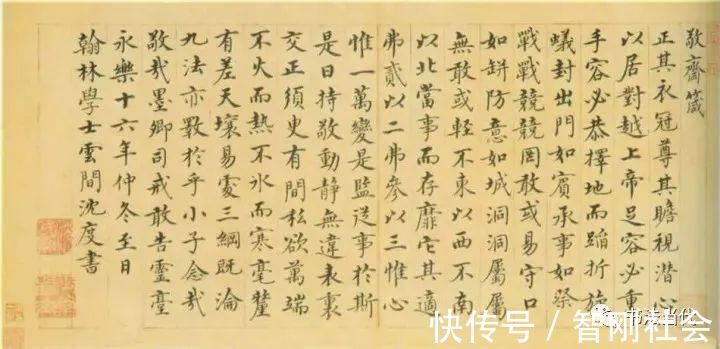 敬齋箴
正其衣冠尊其瞻視潛心
以居對越上帝足容必重
手容必恭擇地而蹈折旋
蟻封出門如賓承事如祭
戰戰兢兢罔敢或易守口
如缾防意如城洞洞屬屬
無敢或輕不東以西不南
以北當事而存靡它其適
弗貳以二弗參以三惟心
惟一萬變是監從事於斯
是曰持敬動靜無違表裏
交正須臾有間私欲萬端
不火而熱不氷而寒毫釐
有差天壤易處三綱既淪
九法亦斁於乎小子念哉
敬哉墨卿司戒敢告靈臺
永樂十六年仲冬至日
翰林學士雲間沈度書
快传号 / 智刚社会